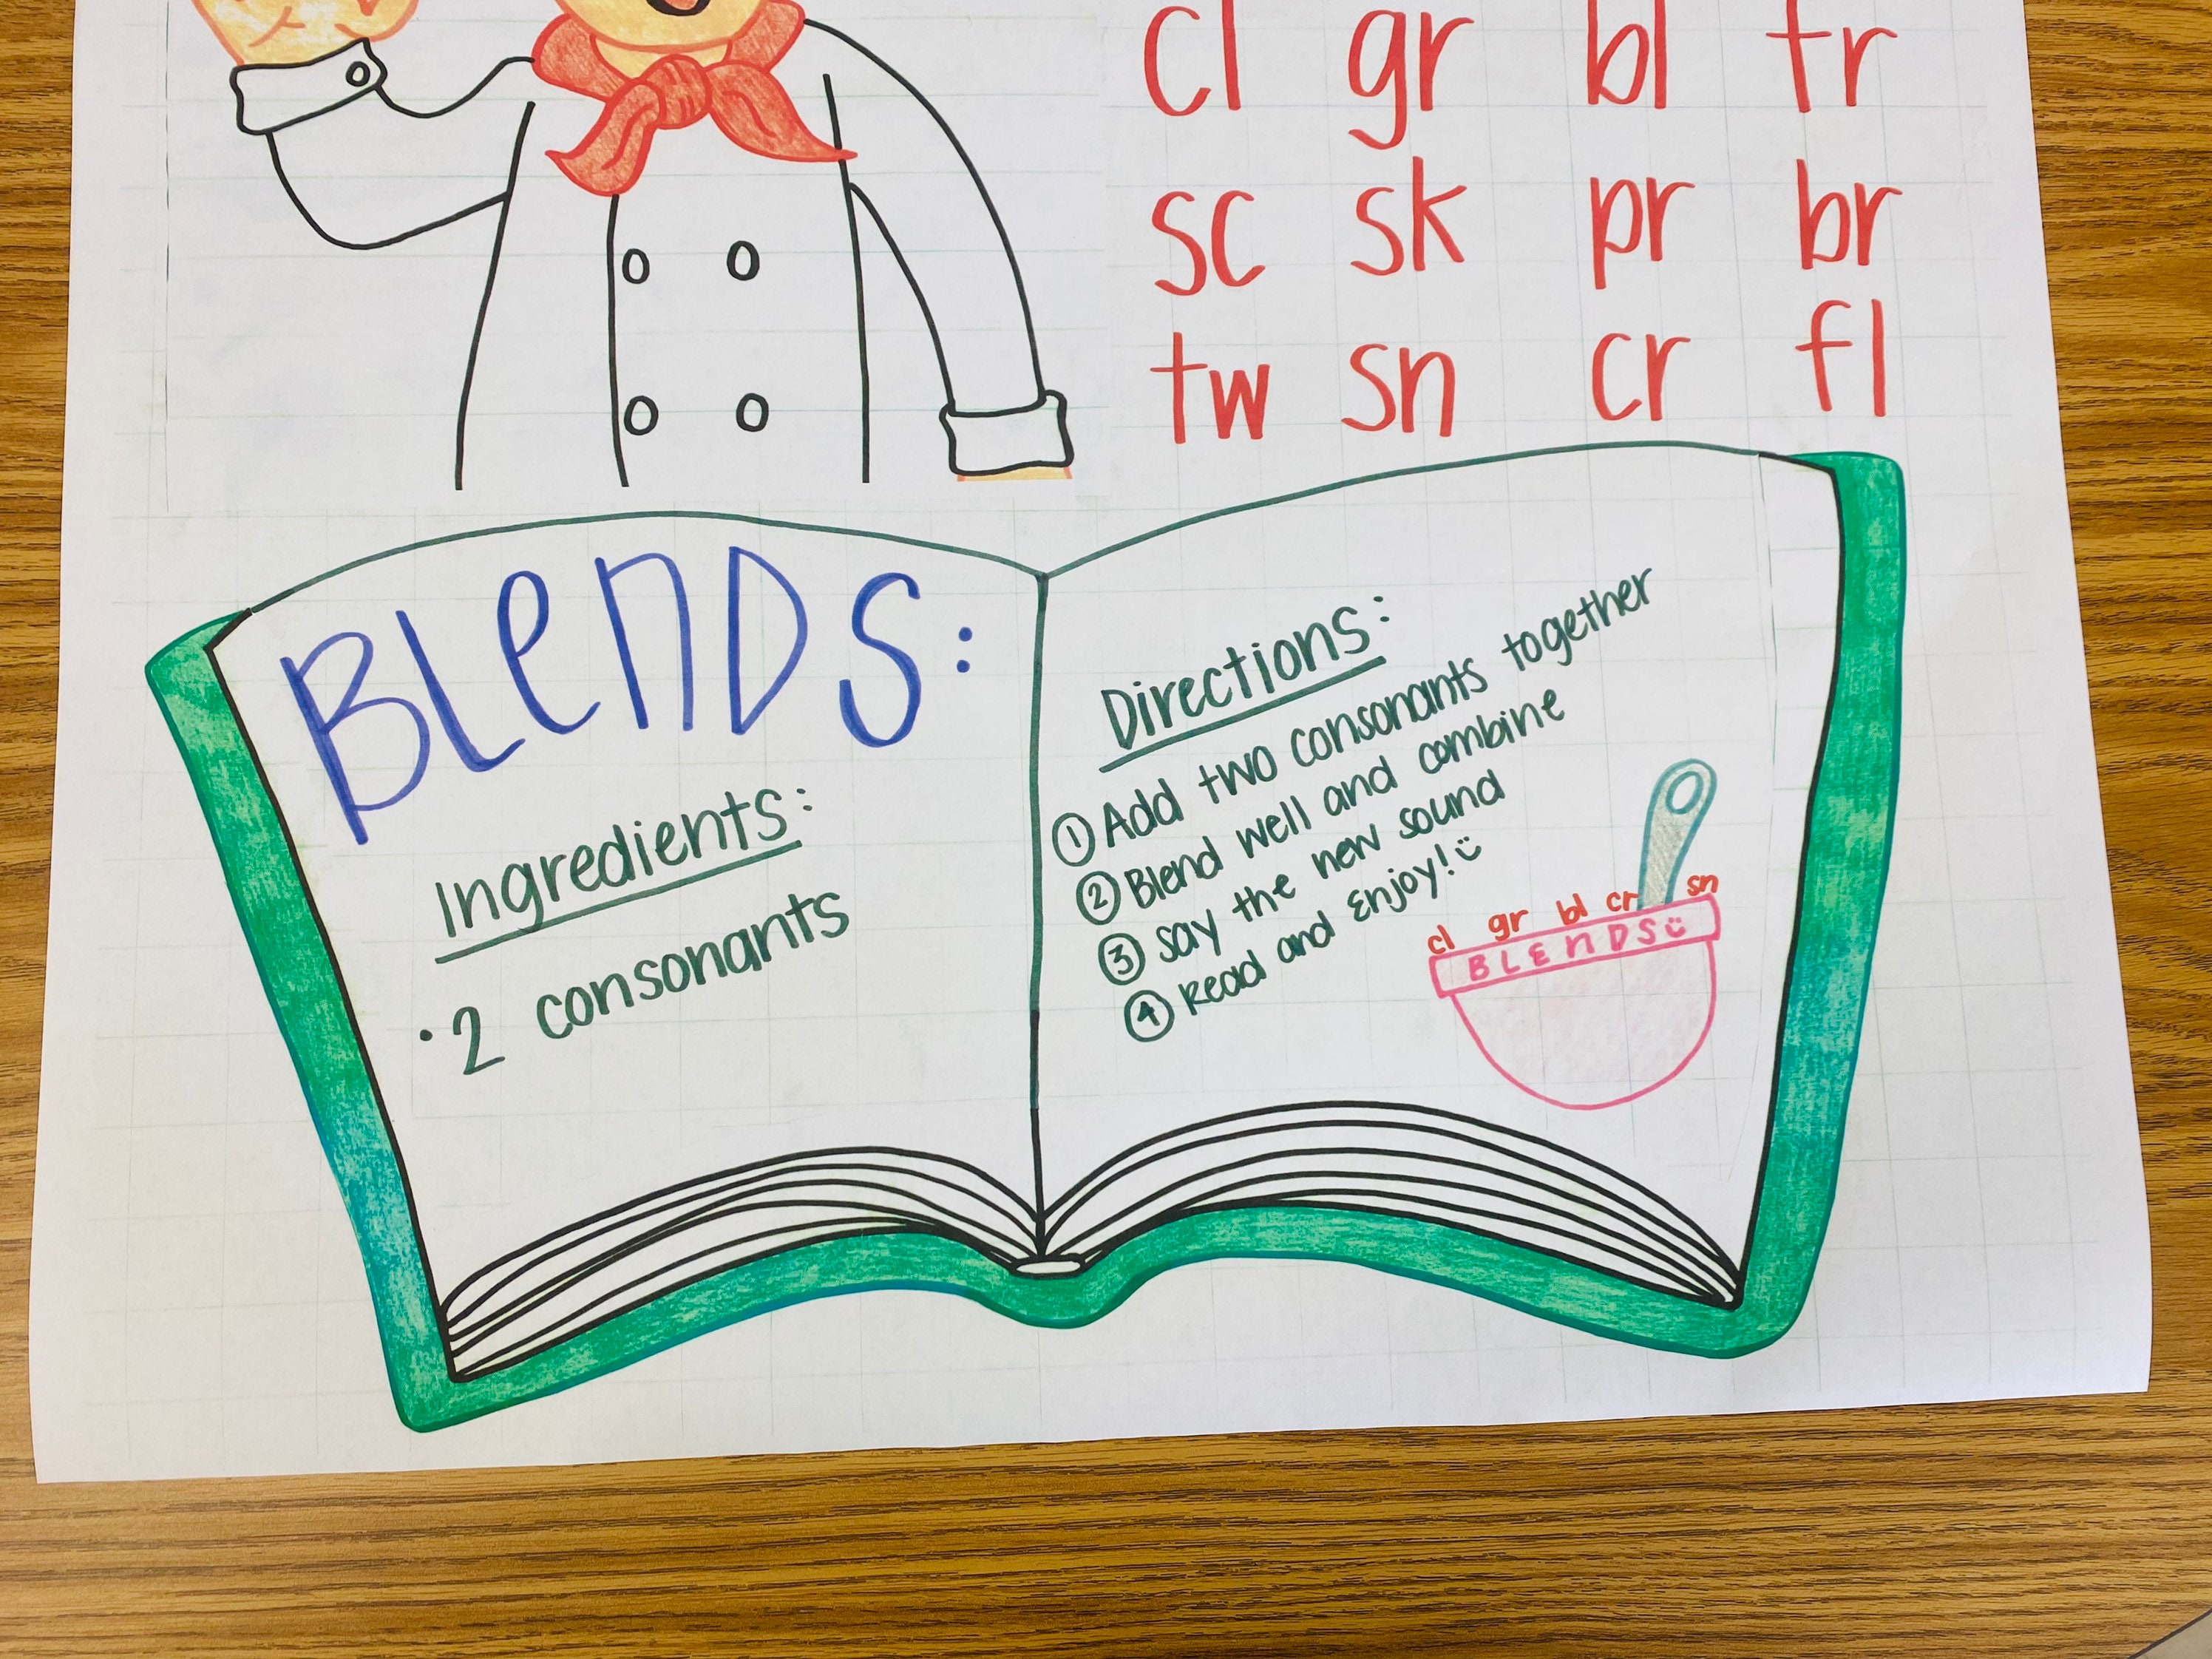 cl gr bl tr
sc sk pr br
tw sn cr fl
BLenDS:
Ingredients:
• 2 consonants
Directions:
① Add two consonants together
② Blend well and combine
③ say the new sound
④ Read and Enjoy!
cl gr bl cr sn
BLEnDS